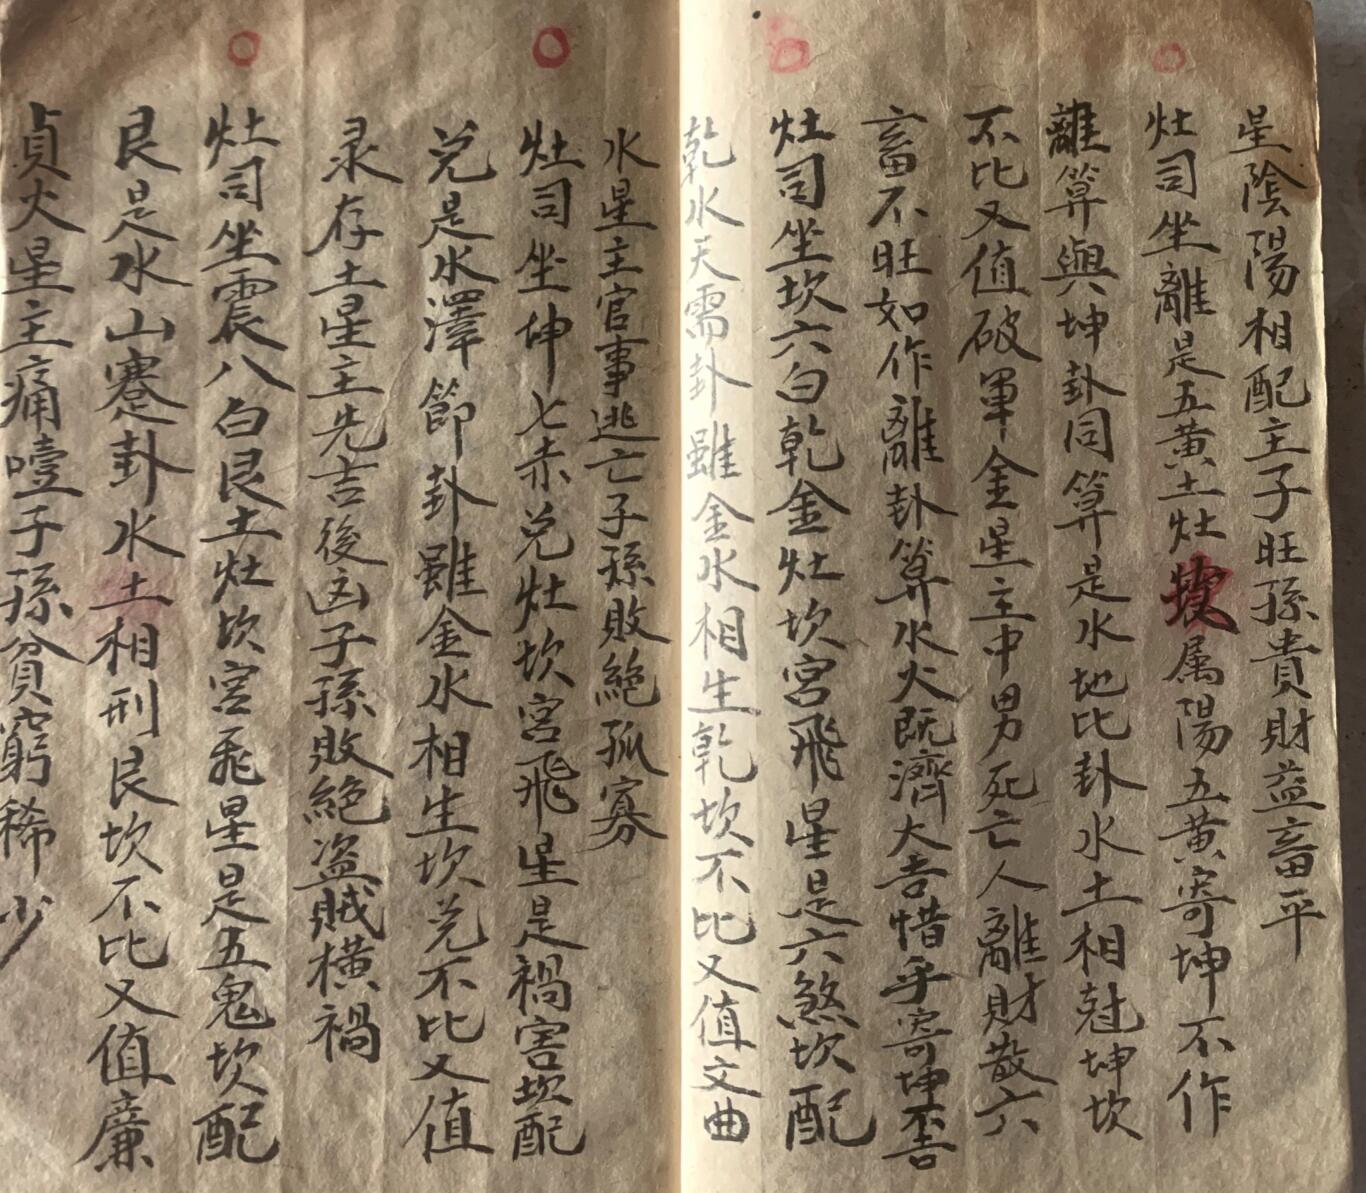 星陰陽相配主子旺孫貴財益畜平
灶司坐離是五黄土灶属陽五黄寄坤不作
離算與坤卦同算是水地比卦水土相尅坤坎
不比又值破軍金星主中男死亡人離財散六
畜不旺如作離卦算水火既濟大吉惜乎寄坤否
灶司坐坎六白乾金灶坎宮飛星是六煞坎配
乾水天需卦雖金水相生乾坎不比又值文曲
水星主官事逃亡子孫敗絕孤寡
灶司坐坤七赤兑灶坎宮飛星是禍害坎配
兑是水澤節卦雖金水相生坎兑不比又值
录存土星主先吉後凶子孫敗絕盗賊横禍
灶司坐震八白艮土灶坎宮飛星是五鬼坎配
艮是水山蹇卦水土相刑艮坎不比又值廉
貞火星主痛噎子孫貧窮稀少